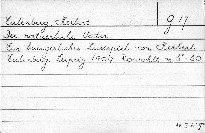 Eulenberg, Herbert
g 11
Der natürliche Vater
Ein bürgerliches Lustspiel von Herbert
Eulenberg. Leipzig 1909